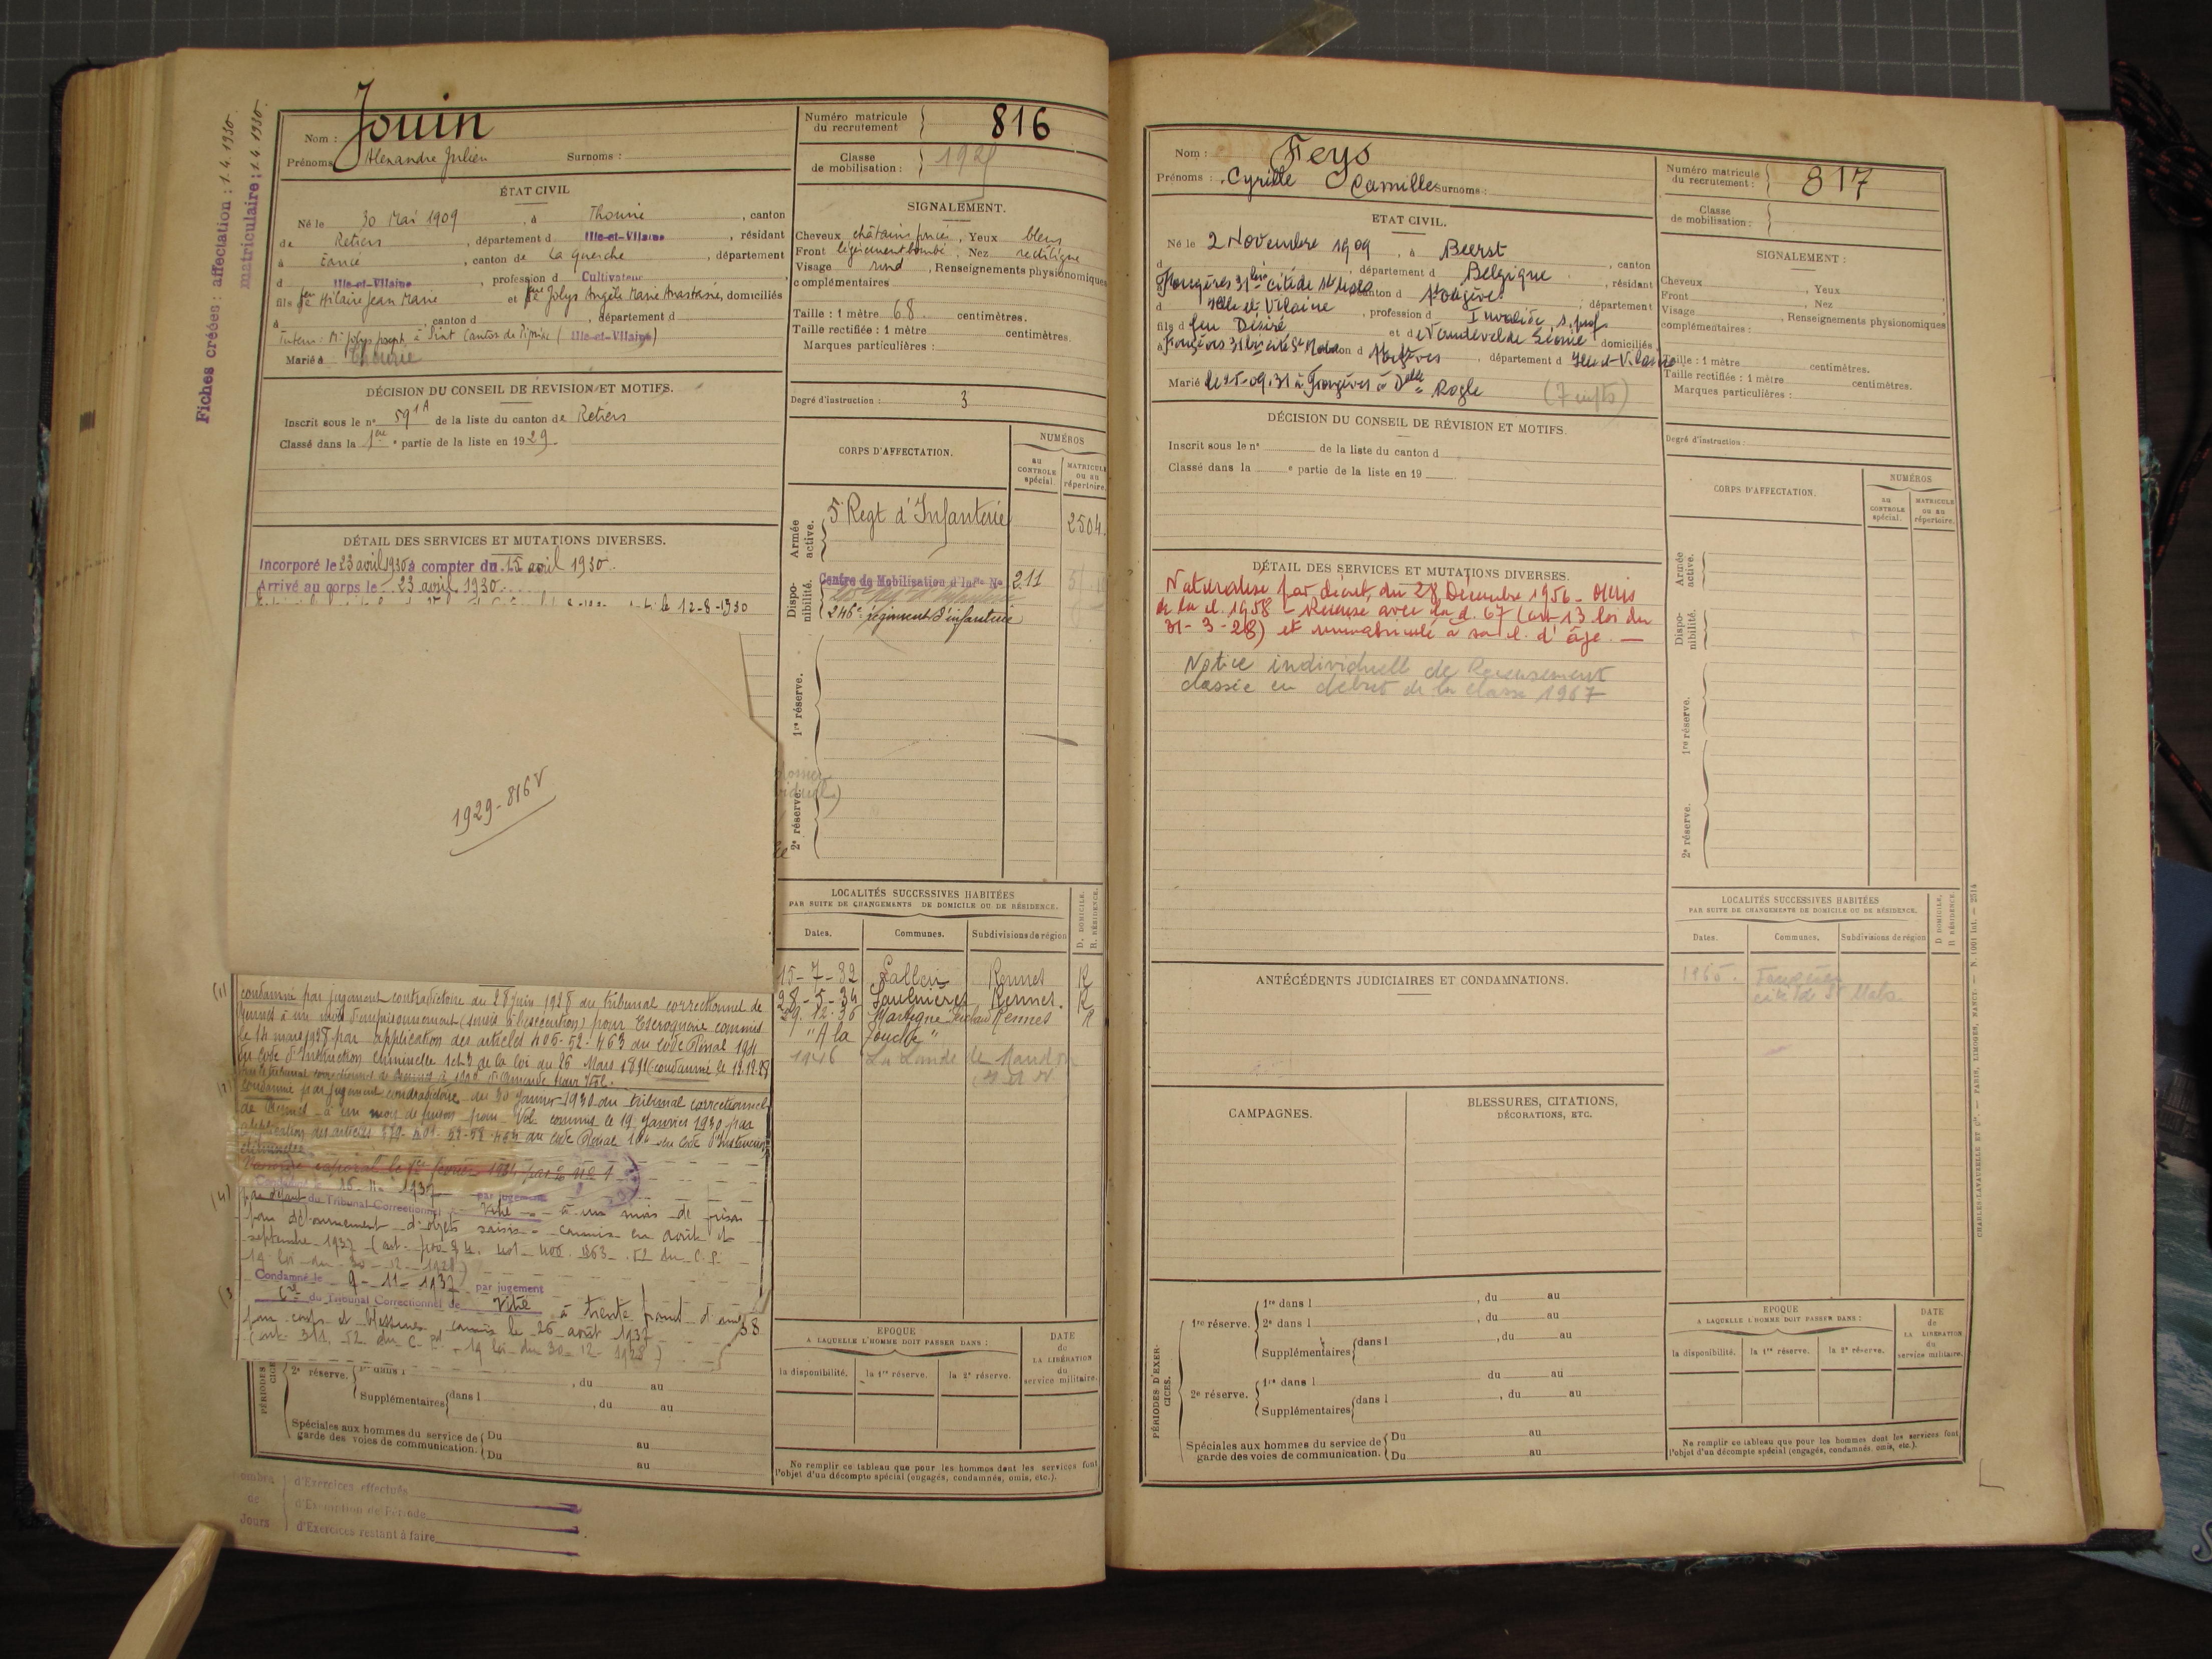 Fiches créées : affectation : 1.4.1930.
matriculaire : 1.4.1930.
Nom : Jouin
Prénoms Alexandre Julien Surnoms :
ÉTAT CIVIL
Né le 30 Mai 1909, à Thourie, canton
de Retiers, département d Ille-et-Vilaine, résidant
à Eancé, canton de La Guerche, département
d Ille-et-Vilaine, profession d Cultivateur
fils de feu Hilaire Jean Marie et de feue Jolys Angèle Marie Anastasie, domiciliés
à , canton d , département d
tuteur : Mr Jolys Joseph, à Canton de (Ille-et-Vilaine)
Marié à
DÉCISION DU CONSEIL DE RÉVISION ET MOTIFS.
Inscrit sous le n° 59 1A de la liste du canton de Retiers
Classé dans la 1ère partie de la liste en 1929.
DÉTAIL DES SERVICES ET MUTATIONS DIVERSES.
Incorporé le 23 avril 1930 à compter du 15 avril 1930.
Arrivé au corps le 23 avril 1930.
le 12-8-1930
1929-816 V
(1) condamné par jugement contradictoire du 28 juin 1928 du tribunal correctionnel de
Rennes à un mois d'emprisonnement (sursis à l'exécution) pour Escroquerie commis
le 14 mars 1928 par application des articles 405-52-463 du code Pénal 194
du code d'Instruction Criminelle 1 et 3 de la loi du 26 Mars 1891 (condamné le 12.12.28
(2) condamné par jugement contradictoire du 30 Janvier 1930 du tribunal correctionnel
de Rennes à un mois de prison pour Vol commis le 19 Janvier 1930 par
application des articles 379-401-52-58-463 du code Pénal 194 du code d'Instruction
criminelle
(4) Condamné le 16-11-1937 par jugement
par défaut du Tribunal Correctionnel de Vitré à un mois de prison
pour détournement d'objets saisis commis en août et
septembre 1937 (art. 400 § 4. 401-406-463-52 du C.P.
19 loi du 30-12-1928)
(3 Condamné le 9-11-1937 par jugement
du Tribunal Correctionnel de Vitré à trente francs d'am
pour coups et blessures, commis le 26 août 1937
(art. 311, 52 du C. Pl, 19 loi du 30-12-1928)
38
PÉRIODES
2e réserve. 1re dans l , du au
Supplémentaires dans l , du au
Spéciales aux hommes du service de garde des voies de communication. Du au
Du au
ombre de Jours
d'Exercices effectués
d'Exemption de Période
d'Exercices restant à faire
Numéro matricule du recrutement 816
Classe de mobilisation : 1929
SIGNALEMENT.
Cheveux châtains foncés, Yeux bleus
Front légèrement bombé, Nez rectiligne
Visage rond, Renseignements physionomiques
complémentaires
Taille : 1 mètre 68. centimètres.
Taille rectifiée : 1 mètre centimètres.
Marques particulières :
Degré d'instruction : 3
CORPS D'AFFECTATION.
NUMÉROS
au CONTROLE spécial.
MATRICULE ou au répertoire.
Armée active.
5 Regt d'Infanterie 2504.
Disponibilité.
Centre de Mobilisation d'Infie N° 211
246e régiment d'infanterie
1re réserve.
2e réserve.
LOCALITÉS SUCCESSIVES HABITÉES
PAR SUITE DE CHANGEMENTS DE DOMICILE OU DE RÉSIDENCE.
Dates. Communes. Subdivisions de région D. DOMICILE. R. RÉSIDENCE.
15-7-32 Rennes R
28-5-34 Saulnières Rennes. R
29.12.36 Martigné Ferchaud Rennes R
"A la Touche"
1946 La Lande de
EPOQUE
A LAQUELLE L'HOMME DOIT PASSER DANS :
la disponibilité. la 1re réserve. la 2e réserve.
DATE de LA LIBÉRATION du service militaire.
Ne remplir ce tableau que pour les hommes dont les services font
l'objet d'un décompte spécial (engagés, condamnés, omis, etc.).
Nom : Feys
Prénoms : Cyrille Camille Surnoms :
ETAT CIVIL.
Né le 2 Novembre 1909, à Beerst, canton
d , département d Belgique, résidant
Fougères 31 bis cité de St Malo canton d Fougères, département
d Ille et Vilaine, profession d Invalide, s. prof.
fils d feu Désiré et d Vandevelde Léonie domiciliés
à Fougères 31 bis cité St Malo canton d Fougères, département d Ille et Vilaine
Marié le 25-09-31 à Fougères à Delle Rogle (7 enfts)
DÉCISION DU CONSEIL DE RÉVISION ET MOTIFS.
Inscrit sous le n° de la liste du canton d
Classé dans la e partie de la liste en 19
DÉTAIL DES SERVICES ET MUTATIONS DIVERSES.
Naturalisé par décret du 28 Décembre 1956. Omis
de la cl. 1958 - Recensé avec la cl. 67 (art 13 loi du
31-3-28) et immatriculé à sa cl. d'âge. —
Notice individuelle de Recensement
classée en début de la classe 1967
ANTÉCÉDENTS JUDICIAIRES ET CONDAMNATIONS.
CAMPAGNES.
BLESSURES, CITATIONS,
DÉCORATIONS, ETC.
PÉRIODES D'EXERCICES.
1re réserve. 1re dans l , du au
2e dans l , du au
Supplémentaires dans l , du au
2e réserve. 1re dans l du au
Supplémentaires dans l , du au
Spéciales aux hommes du service de garde des voies de communication. Du au
Du au
Numéro matricule du recrutement : 817
Classe de mobilisation :
SIGNALEMENT :
Cheveux , Yeux
Front , Nez
Visage , Renseignements physionomiques
complémentaires :
Taille : 1 mètre centimètres.
Taille rectifiée : 1 mètre centimètres.
Marques particulières :
Degré d'instruction :
CORPS D'AFFECTATION.
NUMÉROS
au CONTROLE spécial.
MATRICULE ou au répertoire.
Armée active.
Disponibilité.
1re réserve.
2e réserve.
LOCALITÉS SUCCESSIVES HABITÉES
PAR SUITE DE CHANGEMENTS DE DOMICILE OU DE RÉSIDENCE.
Dates. Communes. Subdivisions de région D. DOMICILE. R. RÉSIDENCE
1965. Fougères
cité de St Malo
EPOQUE
A LAQUELLE L'HOMME DOIT PASSER DANS :
la disponibilité. la 1re réserve. la 2e réserve.
DATE de LA LIBÉRATION du service militaire.
Ne remplir ce tableau que pour les hommes dont les services font
l'objet d'un décompte spécial (engagés, condamnés, omis, etc.).
CHARLES-LAVAUZELLE ET Cie. — PARIS, LIMOGES, NANCY.